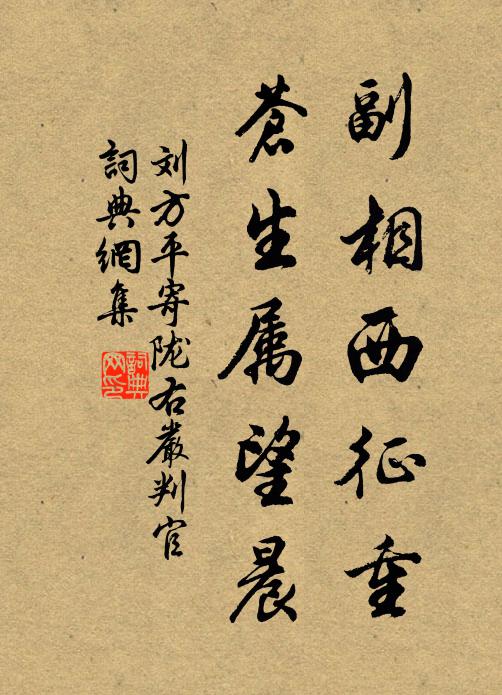 副相西征重
苍生属望晨
刘方平寄陇右嚴判官
詞典網集
詞典网印